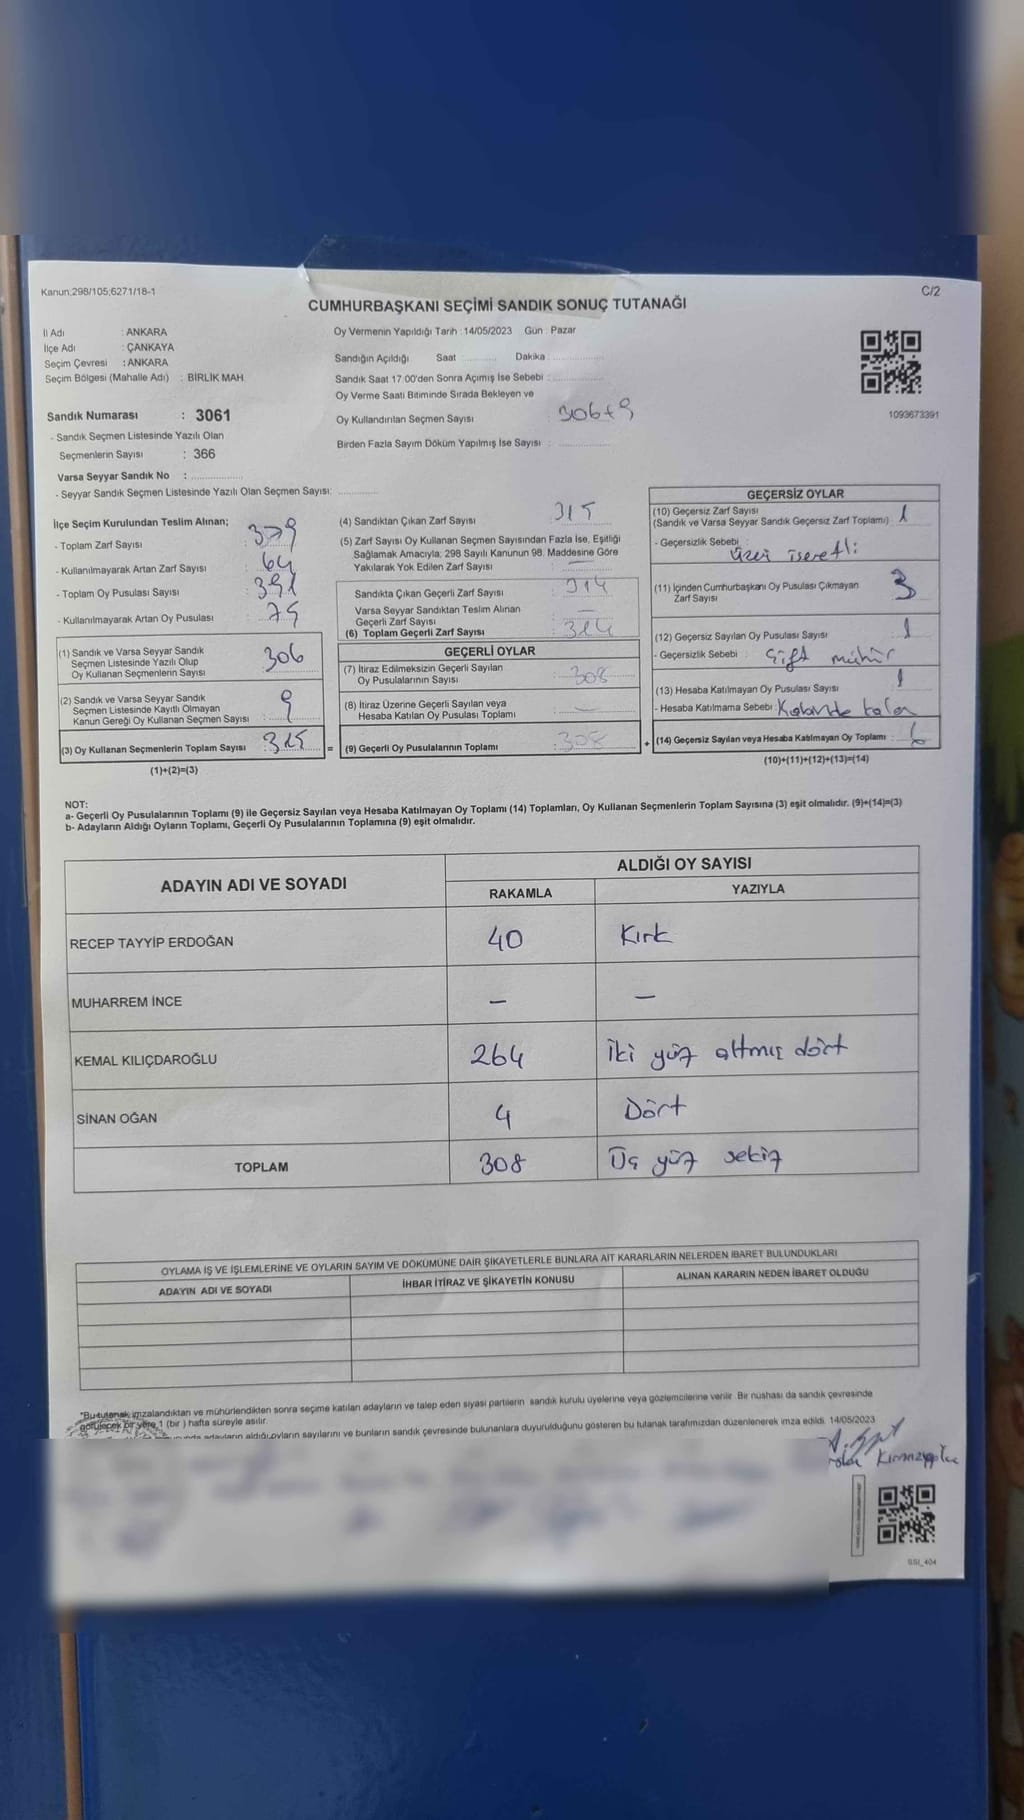 Kanun;298/105;6271/18-1
C/2
CUMHURBAŞKANI SEÇİMİ SANDIK SONUÇ TUTANAĞI
İl Adı : ANKARA
İlçe Adı : ÇANKAYA
Seçim Çevresi : ANKARA
Seçim Bölgesi (Mahalle Adı) : BİRLİK MAH
Sandık Numarası : 3061
- Sandık Seçmen Listesinde Yazılı Olan
Seçmenlerin Sayısı : 366
Varsa Seyyar Sandık No : ..................
- Seyyar Sandık Seçmen Listesinde Yazılı Olan Seçmen Sayısı: ..............
Oy Vermenin Yapıldığı Tarih :14/05/2023 Gün : Pazar
Sandığın Açıldığı Saat :........... Dakika :..................
Sandık Saat 17:00'den Sonra Açımış İse Sebebi :..................
Oy Verme Saati Bitiminde Sırada Bekleyen ve
Oy Kullandırılan Seçmen Sayısı : 306+9
Birden Fazla Sayım Döküm Yapılmış İse Sayısı :..................
1093673391
İlçe Seçim Kurulundan Teslim Alınan;
- Toplam Zarf Sayısı : 379
- Kullanılmayarak Artan Zarf Sayısı : 64
- Toplam Oy Pusulası Sayısı : 391
- Kullanılmayarak Artan Oy Pusulası : 75
(1) Sandık ve Varsa Seyyar Sandık
Seçmen Listesinde Yazılı Olup
Oy Kullanan Seçmenlerin Sayısı : 306
(2) Sandık ve Varsa Seyyar Sandık
Seçmen Listesinde Kayıtlı Olmayan
Kanun Gereği Oy Kullanan Seçmen Sayısı : 9
(3) Oy Kullanan Seçmenlerin Toplam Sayısı : 315
(1)+(2)=(3)
(4) Sandıktan Çıkan Zarf Sayısı : 315
(5) Zarf Sayısı Oy Kullanan Seçmen Sayısından Fazla İse, Eşitliği
Sağlamak Amacıyla; 298 Sayılı Kanunun 98. Maddesine Göre
Yakılarak Yok Edilen Zarf Sayısı : —
Sandıkta Çıkan Geçerli Zarf Sayısı : 314
Varsa Seyyar Sandıktan Teslim Alınan
Geçerli Zarf Sayısı : —
(6) Toplam Geçerli Zarf Sayısı : 314
GEÇERLİ OYLAR
(7) İtiraz Edilmeksizin Geçerli Sayılan
Oy Pusulalarının Sayısı : 308
(8) İtiraz Üzerine Geçerli Sayılan veya
Hesaba Katılan Oy Pusulası Toplamı : —
= (9) Geçerli Oy Pusulalarının Toplamı : 308
GEÇERSİZ OYLAR
(10) Geçersiz Zarf Sayısı
(Sandık ve Varsa Seyyar Sandık Geçersiz Zarf Toplamı) : 1
- Geçersizlik Sebebi : üzeri işaretli
(11) İçinden Cumhurbaşkanı Oy Pusulası Çıkmayan
Zarf Sayısı : 3
(12) Geçersiz Sayılan Oy Pusulası Sayısı : 1
- Geçersizlik Sebebi : Çift mühür
(13) Hesaba Katılmayan Oy Pusulası Sayısı : 1
- Hesaba Katılmama Sebebi :
+ (14) Geçersiz Sayılan veya Hesaba Katılmayan Oy Toplamı : 6
(10)+(11)+(12)+(13)=(14)
NOT:
a- Geçerli Oy Pusulalarının Toplamı (9) ile Geçersiz Sayılan veya Hesaba Katılmayan Oy Toplamı (14) Toplamları, Oy Kullanan Seçmenlerin Toplam Sayısına (3) eşit olmalıdır. (9)+(14)=(3)
b- Adayların Aldığı Oyların Toplamı, Geçerli Oy Pusulalarının Toplamına (9) eşit olmalıdır.
ADAYIN ADI VE SOYADI ALDIĞI OY SAYISI
RAKAMLA YAZIYLA
RECEP TAYYİP ERDOĞAN 40 Kırk
MUHARREM İNCE — —
KEMAL KILIÇDAROĞLU 264 İki yüz altmış dört
SİNAN OĞAN 4 Dört
TOPLAM 308 Üç yüz sekiz
OYLAMA İŞ VE İŞLEMLERİNE VE OYLARIN SAYIM VE DÖKÜMÜNE DAİR ŞİKAYETLERLE BUNLARA AİT KARARLARIN NELERDEN İBARET BULUNDUKLARI
ADAYIN ADI VE SOYADI İHBAR İTİRAZ VE ŞİKAYETİN KONUSU ALINAN KARARIN NEDEN İBARET OLDUĞU
*Bu tutanak imzalandıktan ve mühürlendikten sonra seçime katılan adayların ve talep eden siyasi partilerin sandık kurulu üyelerine veya gözlemcilerine verilir. Bir nüshası da sandık çevresinde
görülecek bir yere 1 (bir) hafta süreyle asılır.
adayların aldığı oyların sayılarını ve bunların sandık çevresinde bulunanlara duyurulduğunu gösteren bu tutanak tarafımızdan düzenlenerek imza edildi. 14/05/2023
SSI_404